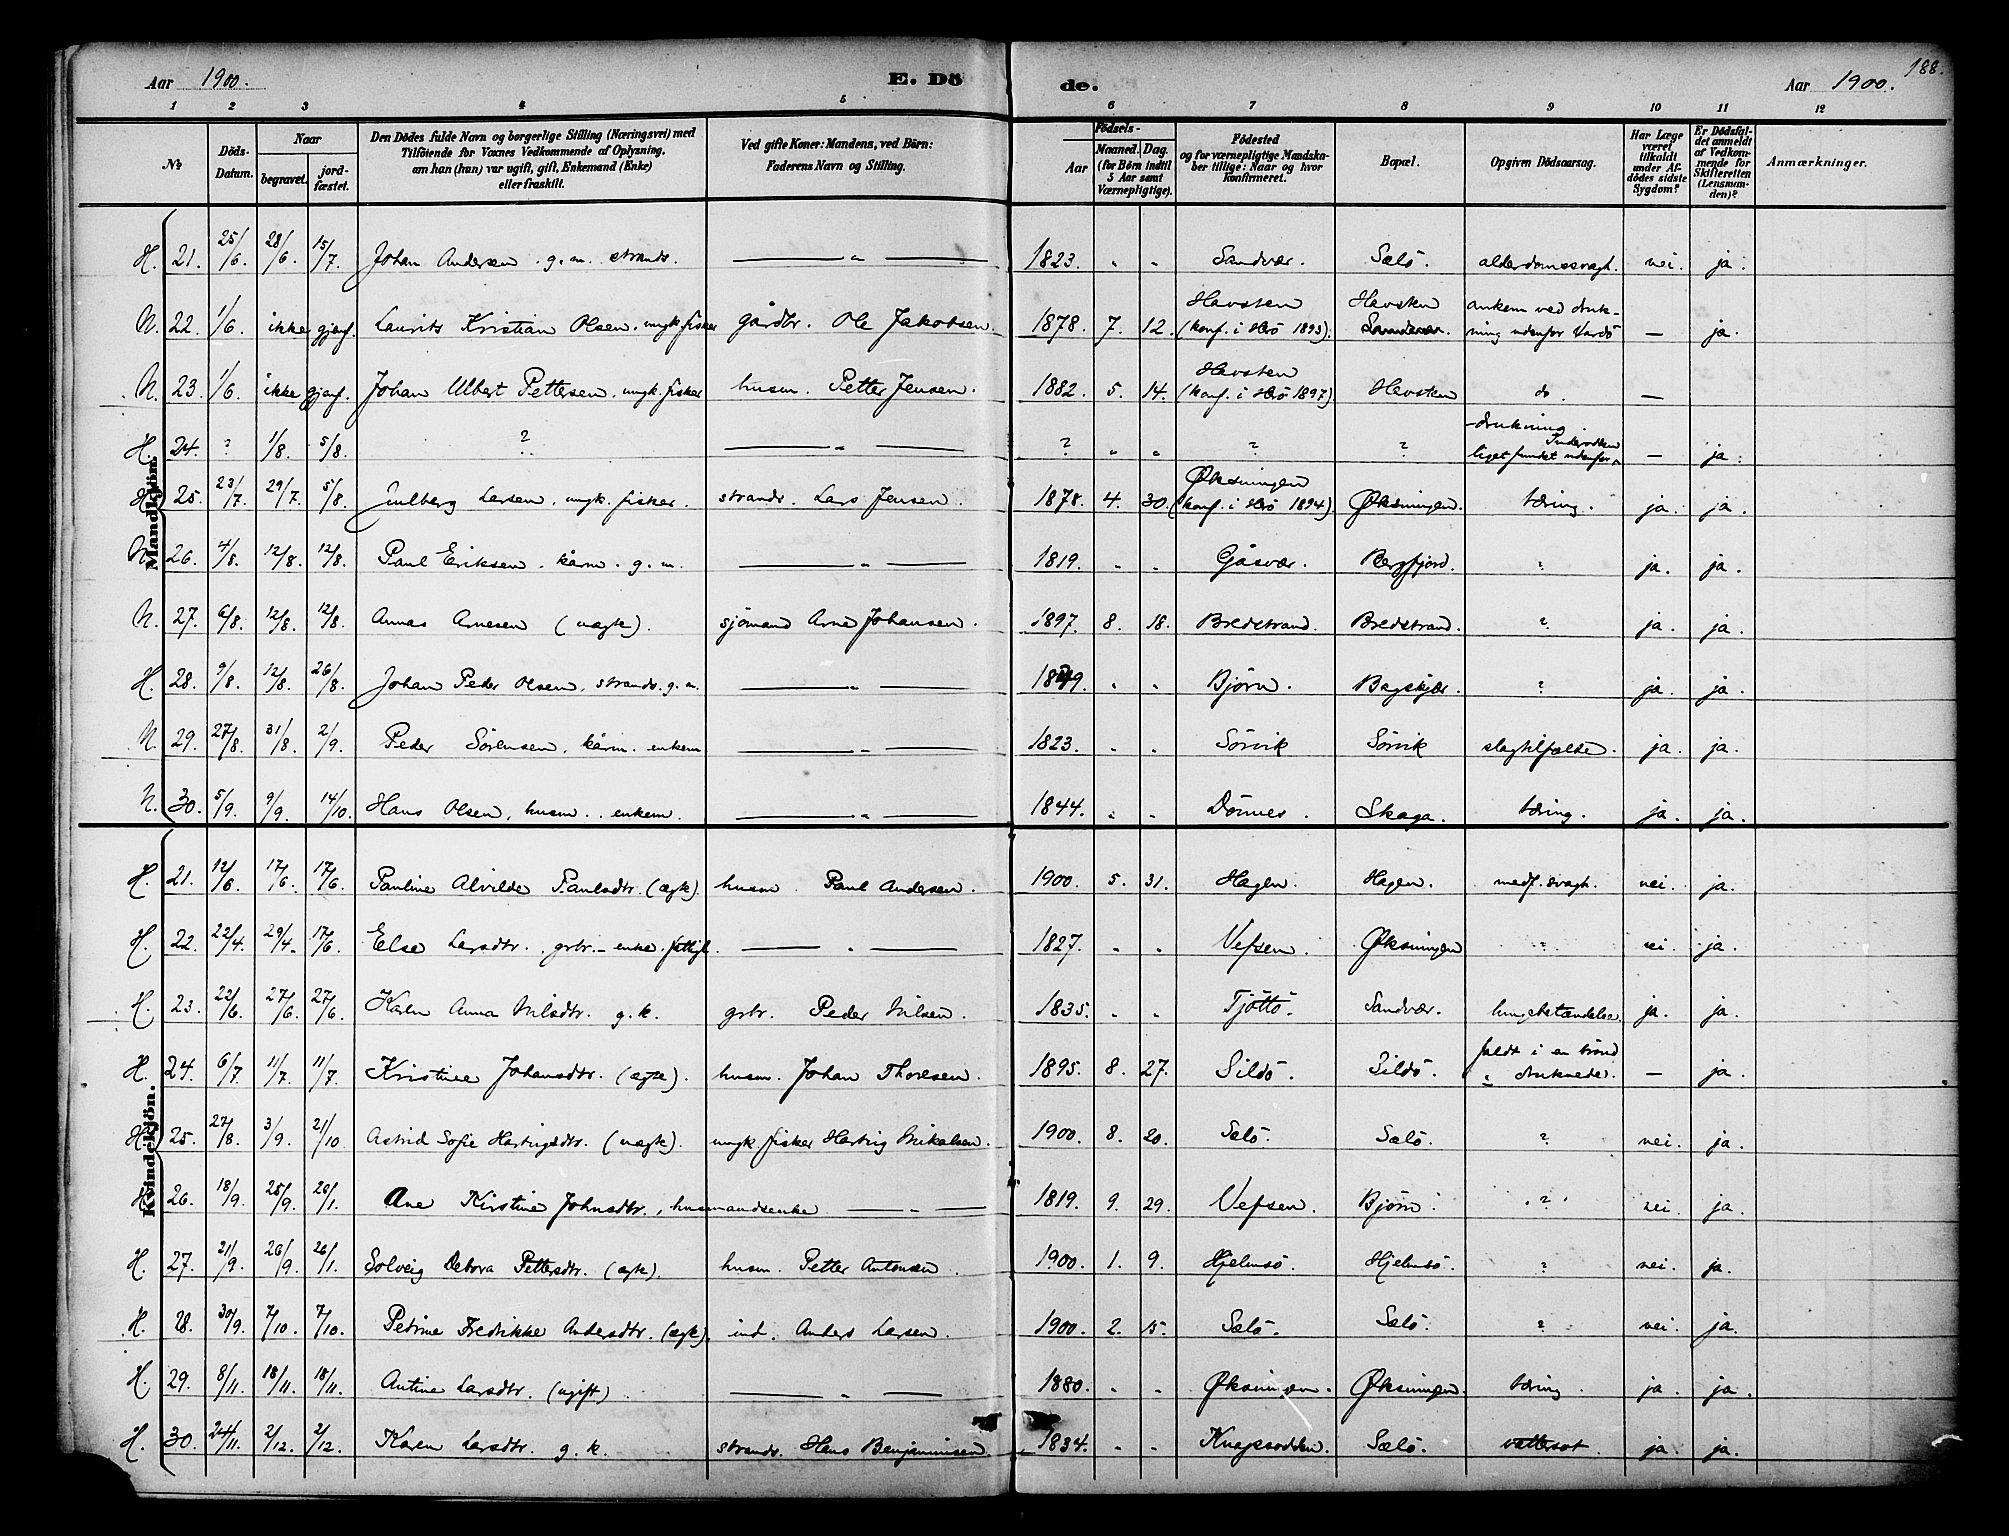 188.
Aar 1900. E. Dö de. Aar 1900.
1 2 3 4 5 6 7 8 9 10 11 12
№ Döds-Datum. Naar begravet. jord-fæstet. Den Dödes fulde Navn og borgerlige Stilling (Næringsvei) med Tilföiende for Voxnes Vedkommende af Oplysning, om han (hun) var ugift, gift, Enkemand (Enke) eller fraskilt. Ved gifte Koner: Mandens, ved Börn: Faderens Navn og Stilling. Födsels- Aar Maaned. Dag. (for Börn indtil 5 Aar samt Værnepligtige). Födested og for værnepligtige Mandska-ber tillige: Naar og hvor konfirmeret. Bopæl. Opgiven Dödsaarsag. Har Læge været tilkaldt under Af-dödes sidste Sygdom? Er Dödsfal-det anmeldt af Vedkom-mende for Skifteretten (Lensman-den)? Anmærkninger.
Mandkjön.
H. 21. 25/6. 28/6 15/7. Johan Andersen. g. m. strands. — " — 1823. " " Sandvær. Sælö. alderdomssvagh. nei. ja.
N. 22. 1/6. ikke gjenf. Laurits Kristian Olsen. ungk. fisker gårdbr. Ole Jakobsen. 1878. 7. 12. Havsten (konf. i Herö 1893). Havsten ankom ved druk-ning udenfor Vardö — ja.
N. 23. 1/6. ikke gjenf. Johan Albert Pettersen. ungk. fisker husm. Petter Jensen. 1882. 5. 14. Havsten (konf. i Herö 1897) Havsten do. —
H. 24. ? 1/8. 5/8. ? — " — ? " " ? ? drukning. liget fundet udenfor — ja.
H. 25. 23/7. 29/7. 5/8. Julberg Larsen. ungk. fisker. strands. Lars Jensen. 1878. 4. 30. Øksningen (konf. i Herö 1894) Øksningen. tæring. ja. ja.
N. 26. 4/8. 12/8. 12/8. Paul Eriksen. kårm. g. m. — " — 1819. " " Gåsvær. Bergfjord. ? ja. ja.
N. 27. 6/8. 12/8. 12/8. Annas Arnesen (uægte). sjömand Arne Johansen. 1897. 8. 18. Bredstrand. Bredstrand. ? ja. ja.
H. 28. 9/8. 12/8. 26/8. Johan Peder Olsen. strands. g. m. — " — 1849. " " Bjørn. Bagskjær. ? ja. ja.
N. 29. 27/8. 31/8. 2/9. Peder Sörensen. kårm. enkem — " — 1823. " " Sörvik Sörvik slagtilfælde. ja. ja.
N. 30. 5/9. 9/9. 14/10. Hans Olsen, husm. enkem. — " — 1844. " " Dönnes. Skaga. tæring. ja. ja.
Kvindekjön.
H. 21. 12/6. 17/6. 17/6. Pauline Alvilde Paulsdtr. (ægte) husm. Paul Andersen. 1900. 5. 31. Hagen. Hagen. medf. svagh. nei. ja.
H. 22. 22/4. 29/4. 17/6. Else Larsdtr. grbr.-enke. fattigl. — " — 1827. " " Vefsen. Øksningen ? nei ja.
H. 23. 22/6. 27/6. 27/6. Karen Anna Nilsdtr. g. k. grbr. Peder Nilsen. 1835. " " Tjöttö. Sandvær. lungebetændelse. ja. ja.
H. 24. 6/7. 11/7. 11/7. Kristine Johansdtr. (ægte). husm. Johan Thoresen. 1895. 8. 27. Sildö. Sildö. faldt i en brönd & druknede. — ja.
H. 25. 27/8. 3/9. 21/10 Astrid Sofie Hartvigsdtr. (uægte). ungk. fisker Hartvig Mikalsen. 1900. 8. 20. Sælö. Sælö. ? nei. ja.
H. 26. 18/9. 25/9. 26/1. Ane Kirstine Johnsdtr., husmandsenke — " — 1819. 9. 29. Vefsen. Bjørn. ? nei. ja.
H. 27. 21/9. 26/9. 26/1. Solveig Debora Pettersdtr. (ægte). husm. Petter Antonsen. 1900. 1. 9. Hjelmsö. Hjelmsö. ? nei. ja.
H. 28. 30/9. 7/10. 7/10. Petrine Fredrikke Andersdtr. (ægte). ind. Anders Larsen. 1900. 2. 15. Sælö. Sælö. ? nei. ja.
H. 29. 8/11. 18/11. 18/11. Antine Larsdtr. (ugift) — " — 1880. " " Øksningen. Øksningen. tæring. ja. ja.
H. 30. 24/11. 2/12. 2/12. Karen Larsdtr. g. k. strands. Hans Benjaminsen 1834. " " Sælö. vattersot. ja. ja.